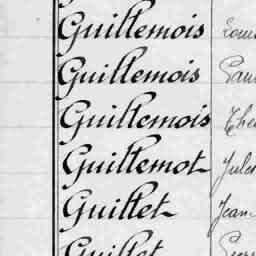 Guillemois Louis
Guillemois Paul
Guillemois
Guillemot Jules
Guillet Jean
Guillet